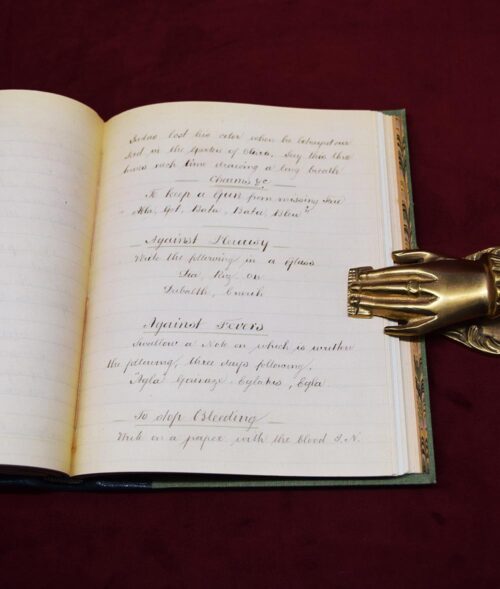 Judas lost his color when he betrayed our
Lord in the Garden of Olives. Say this three
times each time drawing a long breath
Charms &c
To keep a Gun from missing
Abla, Got, Bata, Bata, Bleu
Against Pleurisy
Write the following in a glass
on
Against Fevers
Swallow a Note on which is written
the following, three days following,
"Agla Garnaze Eglatus, Egla
To stop Bleeding
Write on a paper with the blood I. N.